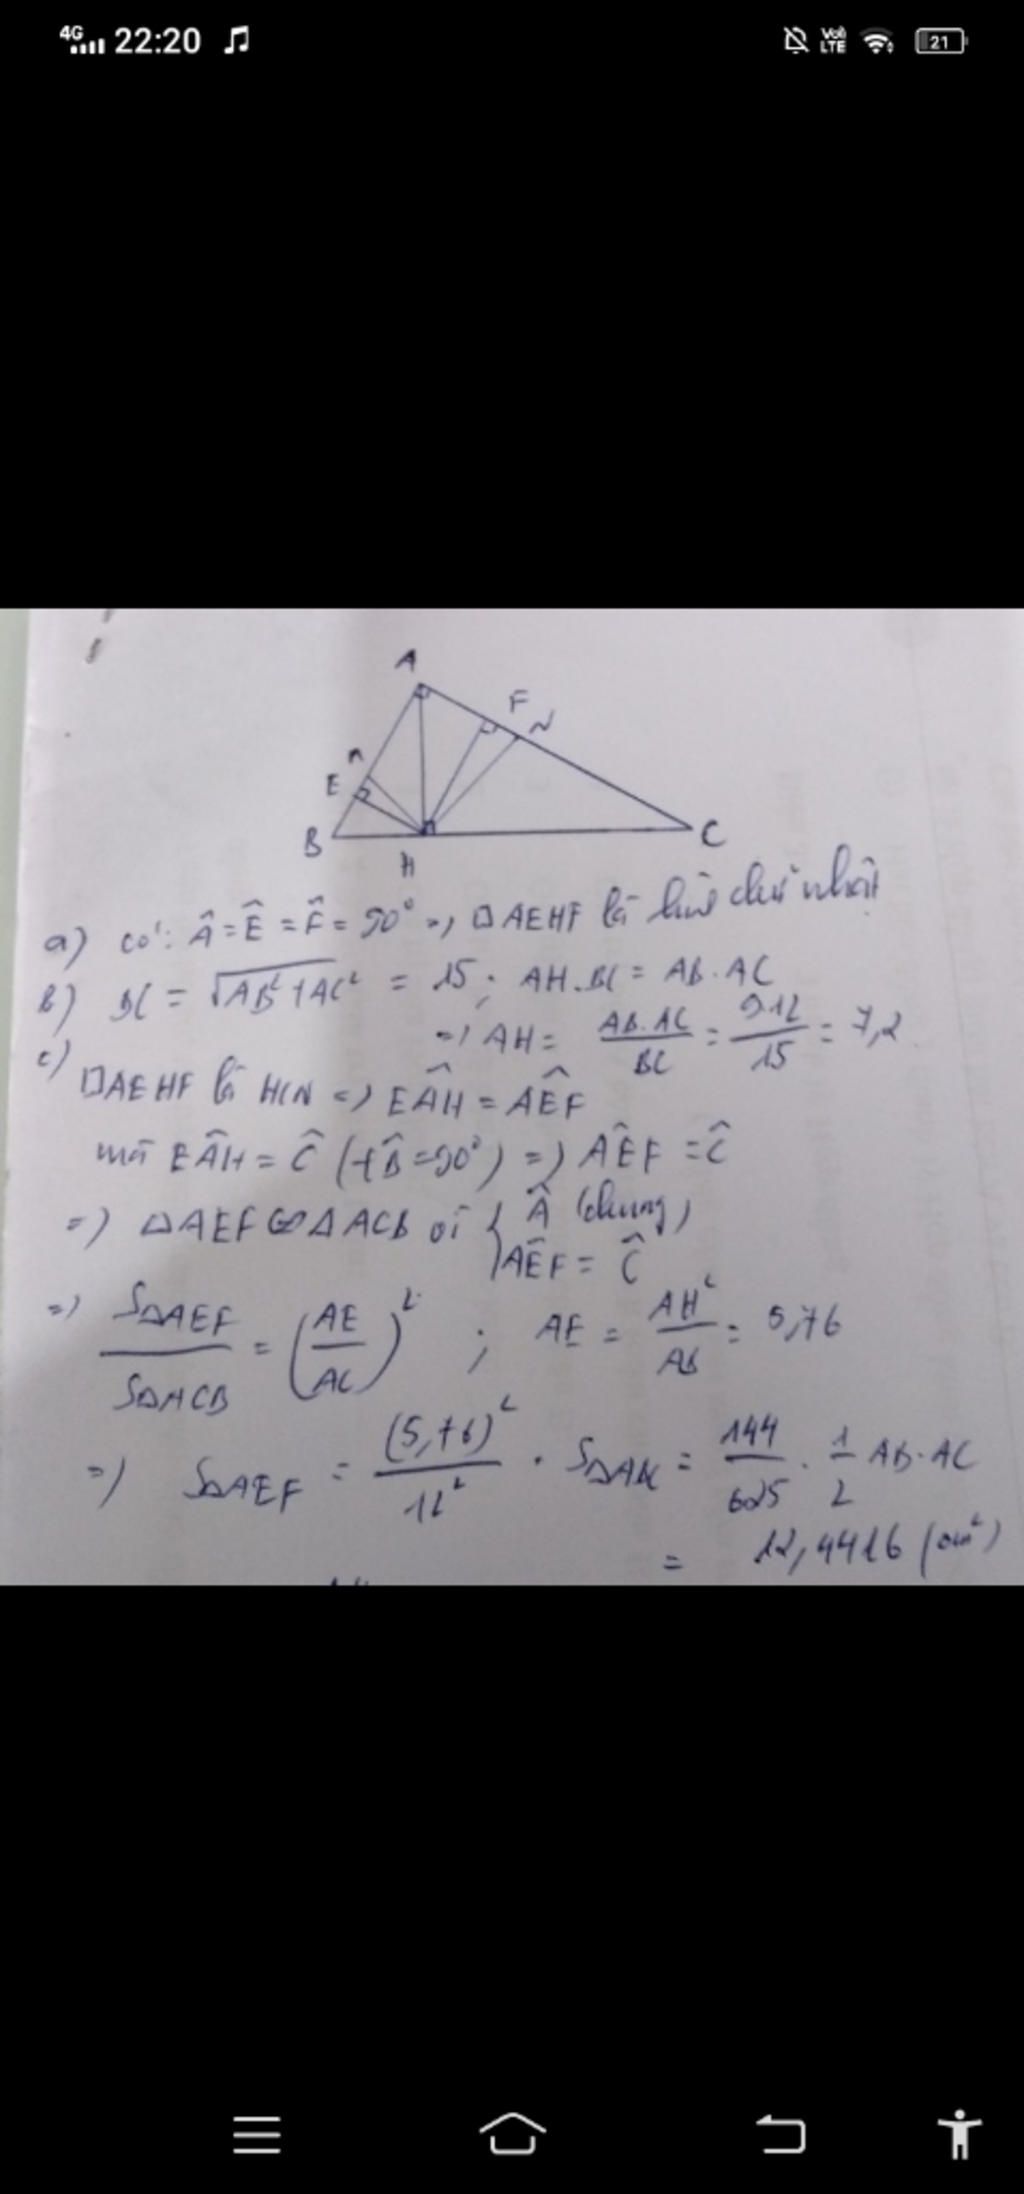 4G 22:20 VoD LTE 21
A
F
N
E
B
H
C
a) có: Â = Ê = F̂ = 90° => □AEHF là hình chữ nhật
b) BC = √AB² + AC² = 15; AH.BC = AB.AC
=> AH = AB.AC/BC = 9.12/15 = 7,2
c)
□AEHF là HCN => EÂH = AÊF
mà EÂH = Ĉ (+B̂ = 90°) => AÊF = Ĉ
=> ΔAEF ∽ ΔACB vì { Â (chung)
AÊF = Ĉ
=> SΔAEF/SΔACB = (AE/AC)² ; AE = AH²/AB = 5,76
=> SΔAEF = (5,76)²/12² . SΔABC = 144/625 . 1/2 AB.AC
= 12,4416 (cm²)